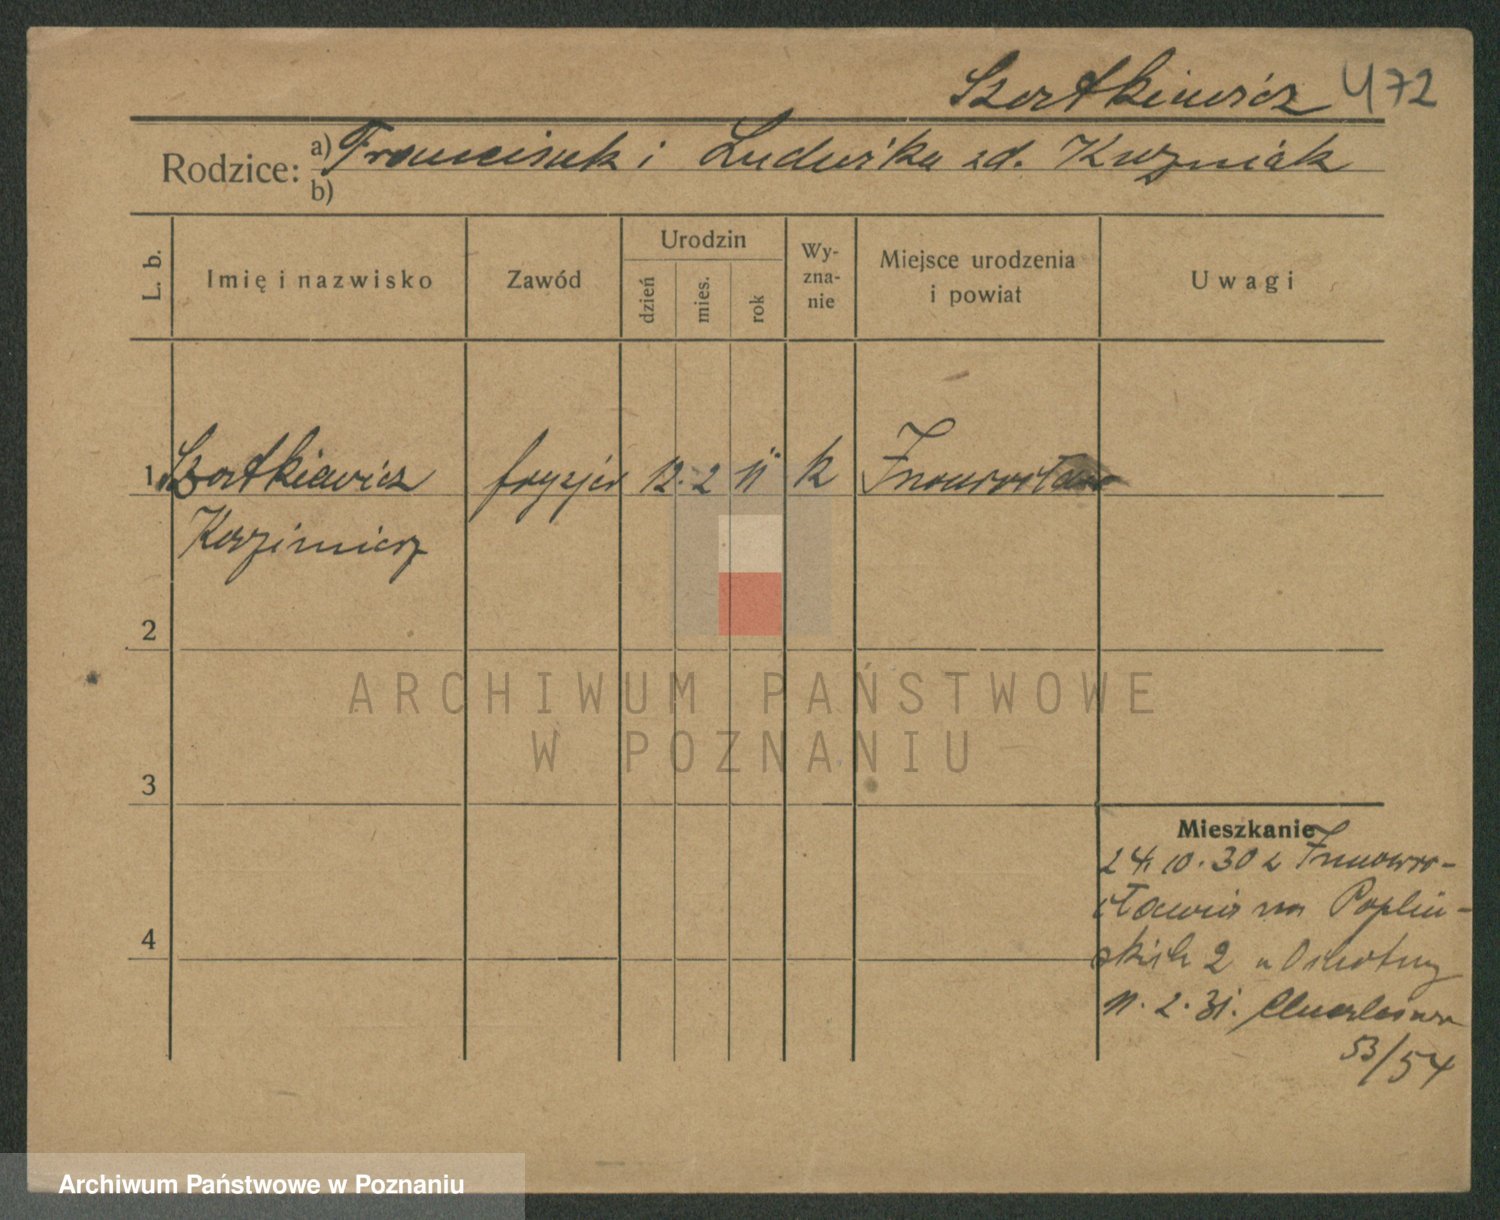 Szortkiewicz 472
Rodzice: a) Franciszek i Ludwika zd. Kuzniak
b)
L. b.
Imię i nazwisko
Zawód
Urodzin
dzień
mies.
rok
Wy-
zna-
nie
Miejsce urodzenia
i powiat
Uwagi
1 Szortkiewicz fryzjer 12. 2 11 k Inowrocław
Kazimierz
2
3
4
Mieszkanie
24. 10. 30 z Inowro-
cławia na Popliń-
skich 2 u
11. 2. 31.
53/54
ARCHIWUM PAŃSTWOWE
W POZNANIU
Archiwum Państwowe w Poznaniu